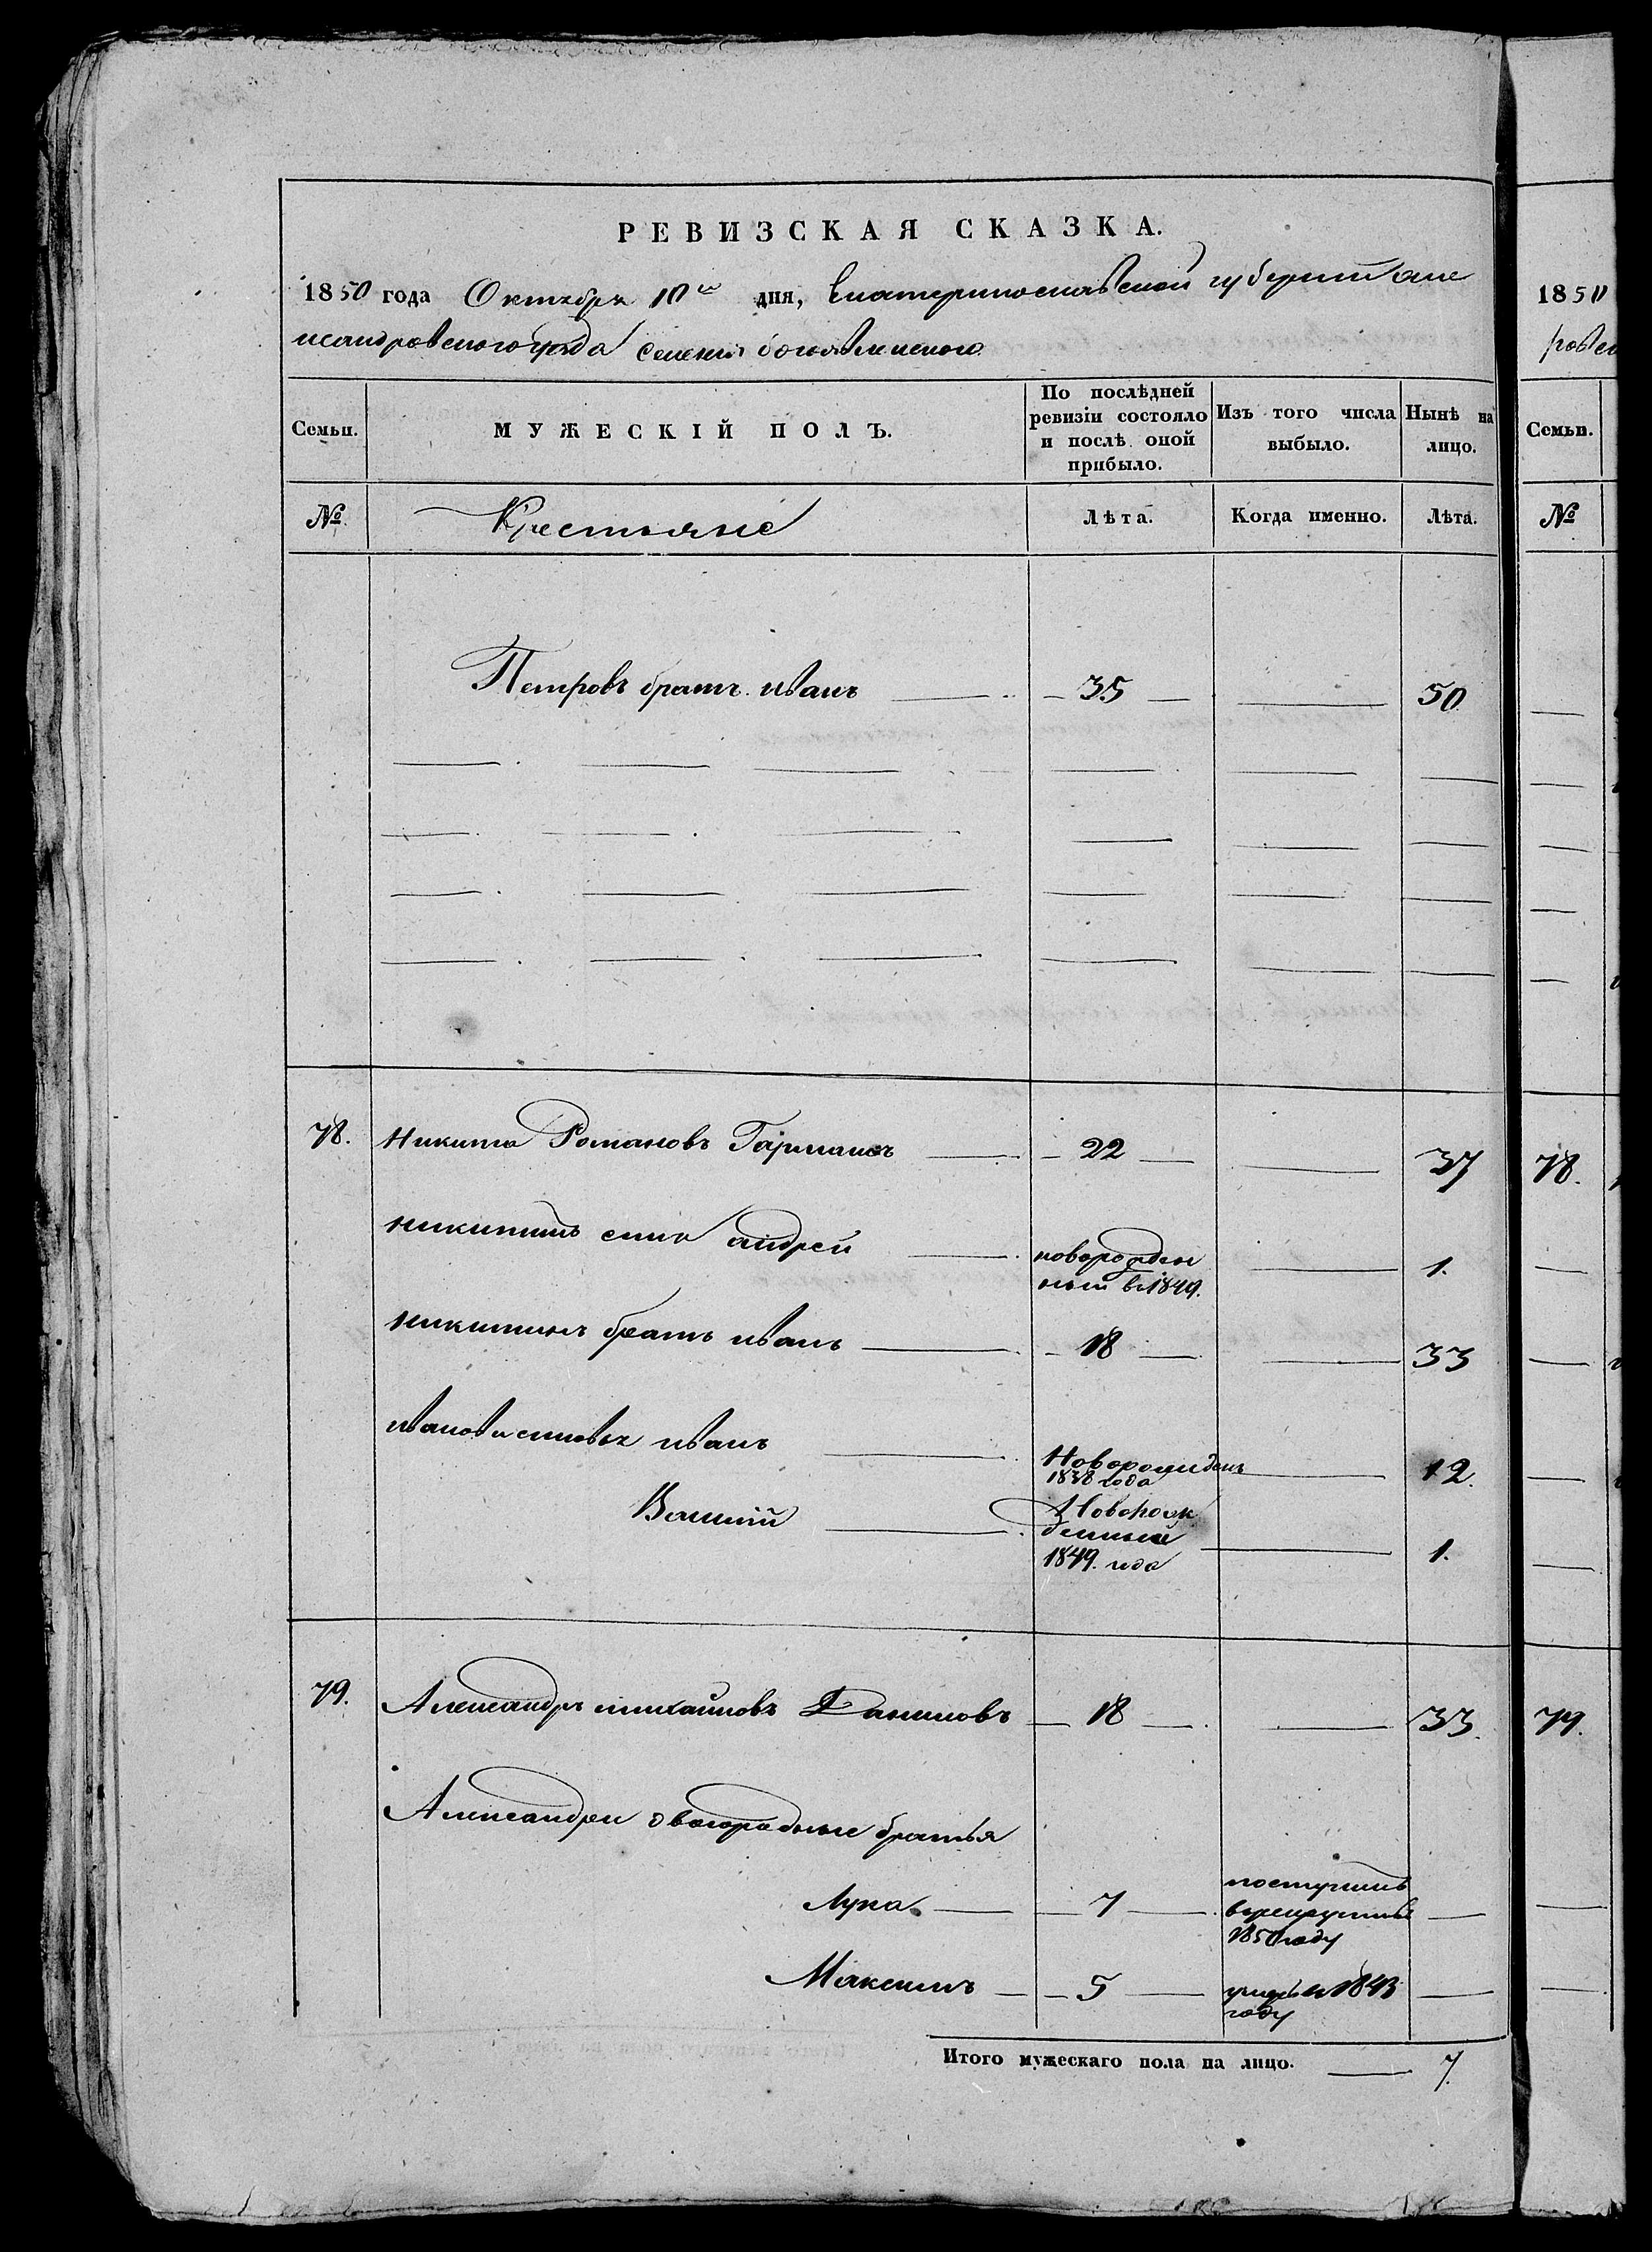 РЕВИЗСКАЯ СКАЗКА.
1850 года Октября 10го дня, Екатеринославской губернии Алек
сандровского уезда селения богоявленского
Семьи. МУЖЕСКІЙ ПОЛЪ. По послѣдней ревизіи состояло и послѣ оной прибыло. Изъ того числа выбыло. Нынѣ на лицо.
№ Крестьяне Лѣта. Когда именно. Лѣта.
Петровъ братъ иванъ 35 50
78. Никита Романовъ Гармашъ 22 37
никитинъ сынъ андрей новорожден
ный в 1849. 1.
никитинъ братъ иванъ 18 33
ивановы сыновья иванъ Новорожденъ
1838 года 12.
Василий Новорож
денный
1849. года 1.
79. Александръ михайловъ Даниловъ 18 33.
Александры двоюродные братья
Лука 7 поступилъ
в рекруты в
1850 году
Максимъ 5 умеръ в 1843
году
Итого мужескаго пола на лицо. 7.
1850
Семьи.
№
78.
79.